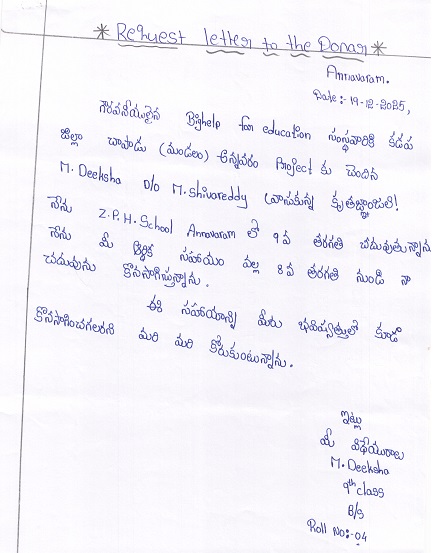 * Request letter to the Donar *
Annavaram.
Date:- 19-12-2025,
గౌరవనీయులైన Bighelp for education సంస్థవారికి కడప
జిల్లా చాపాడు (మండలం) అన్నవరం Project కు చెందిన
M. Deeksha D/o M. Shivareddy వ్రాసుకున్న కృతజ్ఞాంజలి!
నేను Z.P.H. School Annavaram లో 9వ తరగతి చదువుతున్నాను
నేను మీ ఆర్థిక సహాయం వల్ల 8వ తరగతి నుండి నా
చదువును కొనసాగిస్తున్నాను.
ఈ సహాయాన్ని మీరు భవిష్యత్తులో కూడా
కొనసాగించగలరని మరి మరి కోరుకుంటున్నాను.
ఇట్లు
మీ విధేయురాలు
M. Deeksha
9th class
B/s
Roll No:- 04